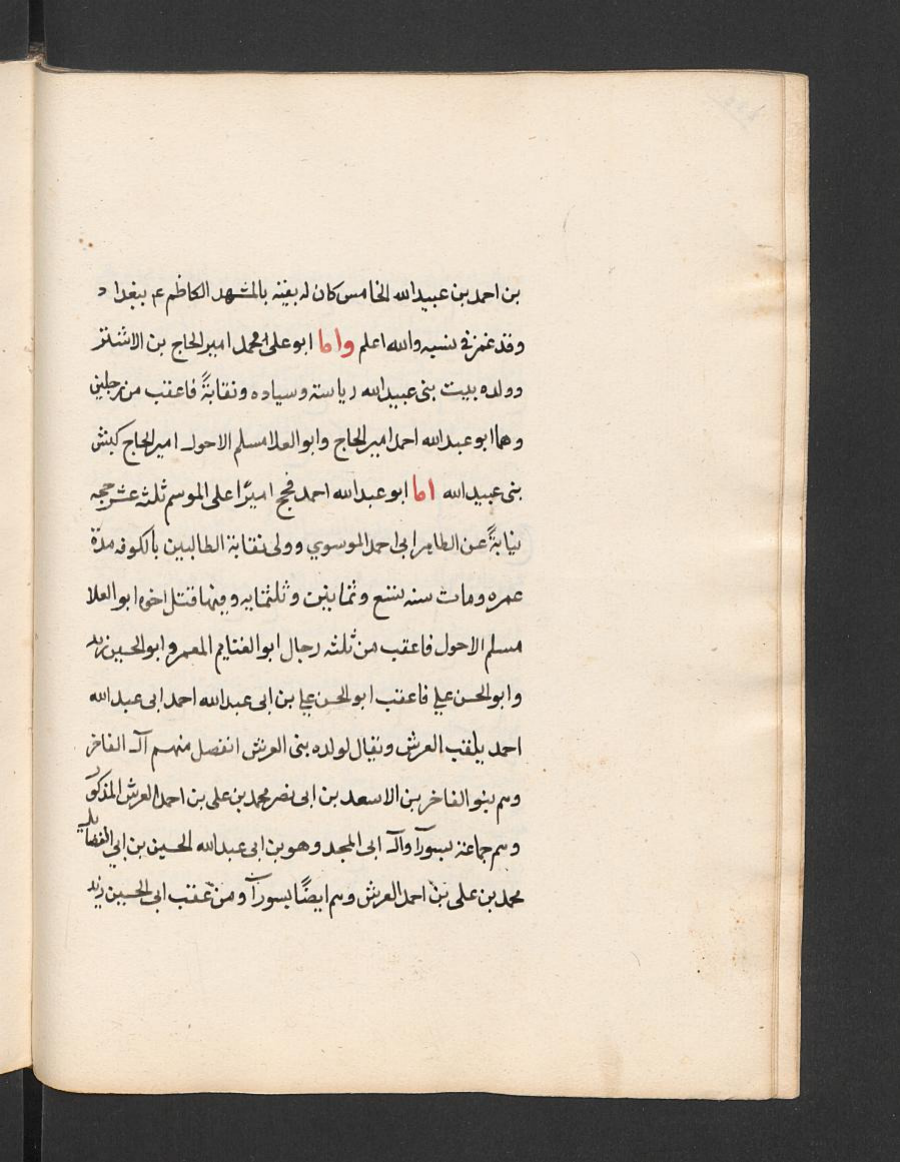 بن احمد بن عبيد الله الخامس كان له بقيه بالمشهد الكاظم ع ببغداد
وقد غمز فى نسبه والله اعلم واما ابو على محمد امير الحاج بن الاشتر
وولده بيت بنى عبيد الله رياسة وسياده ونقابةً فاعقب من رجلين
وهما ابو عبد الله احمد امير الحاج وابو العلا مسلم الاحول امير الحاج كبش
بنى عبيد الله اما ابو عبد الله احمد فحج اميرًا على الموسم ثلثه عشر حجه
نيابةً عن الطاهر ابى احمد الموسوي وولى نقابة الطالبين بالكوفه مدة
عمره ومات سنه تسع وثمانين وثلثمايه وفيها قتل اخوه ابو العلا
مسلم الاحول فاعقب من ثلثه رجال ابو الغنايم المعمر وابو الحسين زيد
وابو الحسن علي فاعقب ابو الحسن علي بن ابى عبد الله احمد ابى عبد الله
احمد يلقب العرش ويقال لولده بنى العرش انفصل منهم آل الفاخر
وهم بنو الفاخر بن الاسعد بن ابى نصر محمد بن على بن احمد العرش المذكور
وهم جماعة بسورآ وآل ابى المجد وهو بن ابى عبد الله الحسين بن ابي الفضايل
محمد بن على بن احمد العرش وهم ايضًا بسورآ ومن عقب ابى الحسين زيد